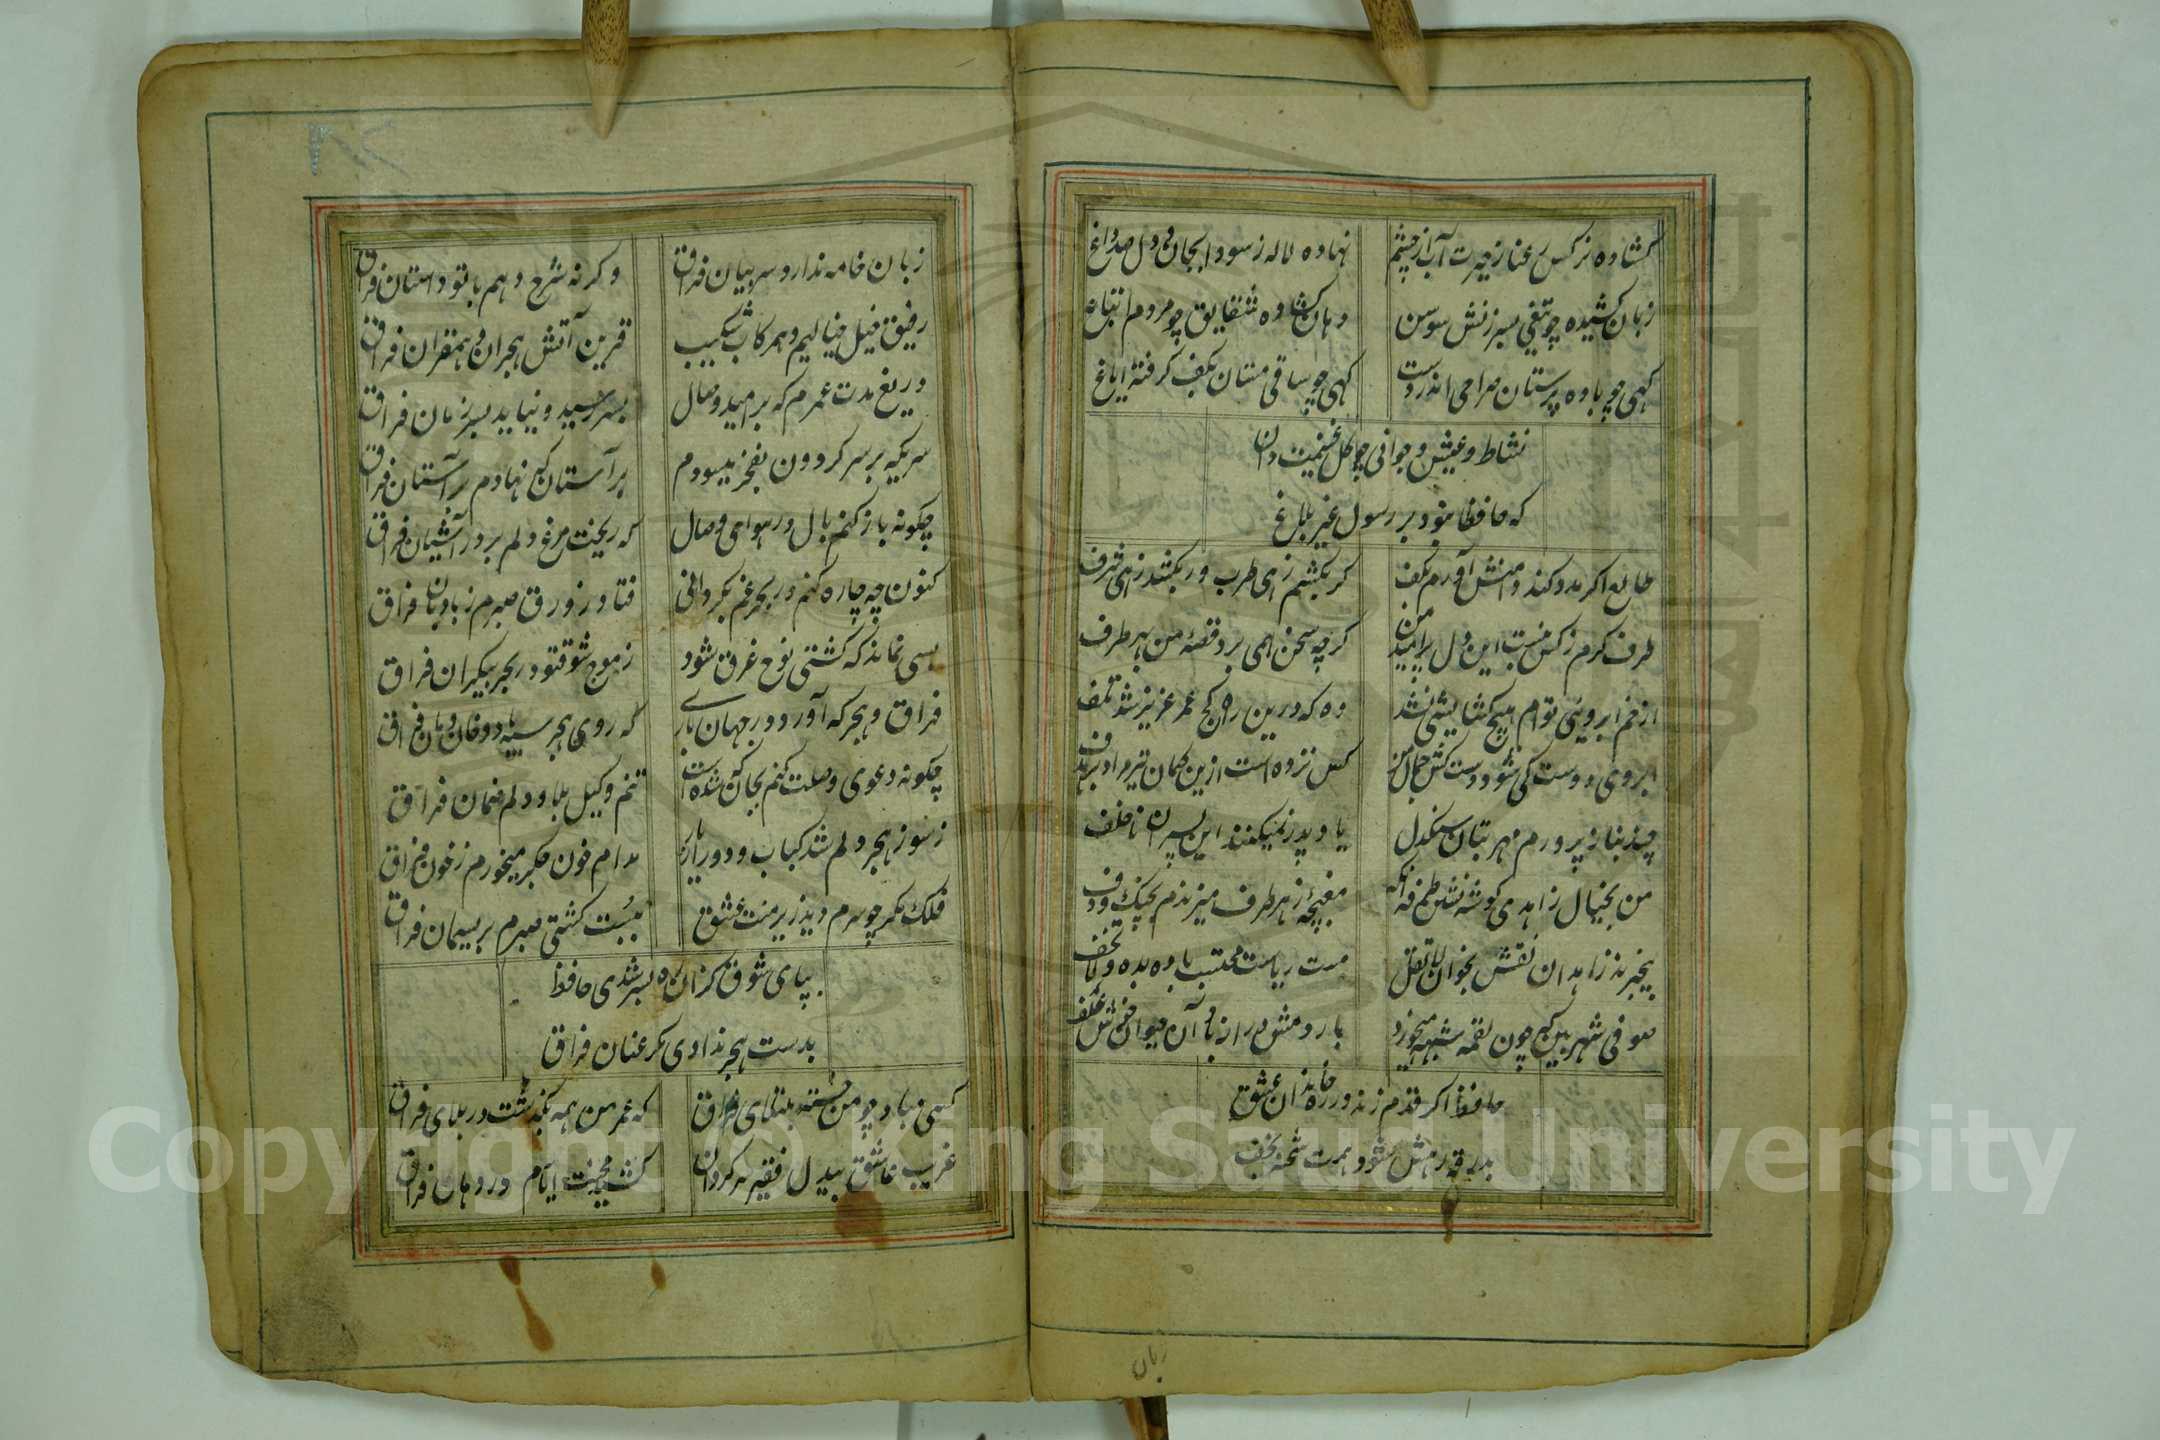 کشاده نرکس رعنا ز حیرت آب از چشم نهاده لاله ز سودا بجان و دل صد داغ
زبان کشیده چو تیغی بسرزنش سوسن دهان کشاده شقایق چو مردم
کهی چو باده پرستان صراحی اندر دست کهی چو ساقی مستان بکف کرفته ایاغ
نشاط و عیش و جوانی چو کل غنیمت دان
که حافظا نبود بر رسول غیر بلاغ
طالع اکر مدد کند دامنش آورم بکف کر بکشم زهی طرب ور بکشد زهی شرف
طرف کرم ز کس نبست این دل پر امید من کرچه سخن همی برد قصه من بهر طرف
از خم ابروی توام هیچ کشایشی نشد وه که درین ره کج عمر عزیز شد تلف
ابروی دوست کی شود دست کش خیال من کس نزده است ازین کمان تیر مراد بر هدف
چند بناز پرورم مهر بتان سنکدل یاد پدر نمیکنند این پسران ناخلف
من بخیال زاهدی کوشه نشین طرفه آنکه مغبچه ز هر طرف میزندم بچنک و دف
بیخبرند زاهدان نقش بخوان لا تقل مست ریاست محتسب باده بده و لا تخف
صوفی شهر بین که چون لقمه شبهه میخورد باردمش دراز باد آن حیوان خوش علف
حافظ اکر قدم زند در ره خاندان عشق
بدرقه رهش شود همت شحنه نجف
زبان
زبان خامه ندارد سر بیان فراق وکرنه شرح دهم با تو داستان فراق
رفیق خیل خیالیم و همرکاب شکیب قرین آتش هجران و همقران فراق
دریغ مدت عمرم که بر امید وصال بسر رسید و نیامد بسر زمان فراق
سریکه بر سر کردون بفخر میسودم بر آستان که نهادم بر آستان فراق
چکونه باز کنم بال در هوای وصال که ریخت مرغ دلم پر در آشیان فراق
کنون چه چاره کنم در بحر غم بکردابی فتاد زورق صبرم ز بادبان فراق
بسی نماند که کشتی نوح غرق شود ز موج شوق تو در بحر بیکران فراق
فراق و هجر که آورد در جهان یارب که روی هجر سیه باد و خان و مان فراق
چکونه دعوی وصلت کنم بجان که شده است تنم وکیل بلا و دلم ضمان فراق
ز سوز هجر دلم شد کباب و دور از یار مدام خون جکر میخورم ز خون فراق
فلک مکر چو سرم دید زیر منت عشق ببست کشتی صبرم بریسمان فراق
بپای شوق کر این ره بسر شدی حافظ
بدست هجر ندادی مکر عنان فراق
کسی مباد چو من خسته مبتلای فراق که عمر من همه بکذشت در بلای فراق
غریب عاشق بیدل فقیر سرکردان کشیده محنت ایام و درد های فراق
Copyright © King Saud University